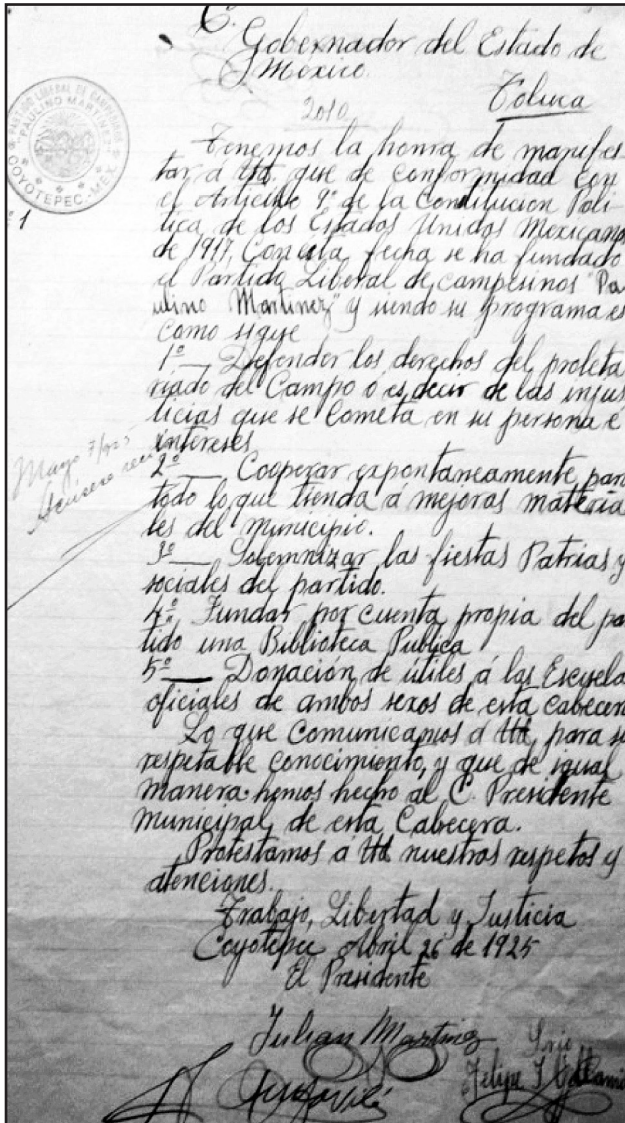 C.
Gobernador del Estado de
México.
Toluca
2010
PARTIDO LIBERAL DE CAMPESINOS
"PAULINO MARTINEZ"
COYOTEPEC.-MEX.
1
Tenemos la honra de manifes-
tar á Ud. que de conformidad con
el Articulo 9º de la Constitucion Poli-
tica de los Estados Unidos Mexicanos
de 1917, Con esta fecha se ha fundado
el Partido Liberal de campesinos "Pa
ulino Martinez" y siendo su programa es
como sigue
1º — Defender los derechos del proleta
riado del Campo o es decir de las injus
ticias que se cometa en su persona é
intereses
Mayo 7/925
2º — Cooperar expontaneamente, para
todo lo que tienda á mejoras materia
les del municipio.
3º — Solemnizar las fiestas Patrias y
sociales del partido.
4º, Fundar por cuenta propia del par
tido una Biblioteca Publica
5º — Donación de útiles á las Escuela
oficiales de ambos sexos de esta cabecera
Lo que comunicamos á Ud, para su
respetable conocimiento, y que de igual
manera hemos hecho al C. Presidente
municipal, de esta Cabecera.
Protestamos á Ud nuestros respetos y
atenciones.
Trabajo, Libertad y Justicia
Coyotepec Abril 26 de 1925
El Presidente
Julian Martinez
Srio
Felipe